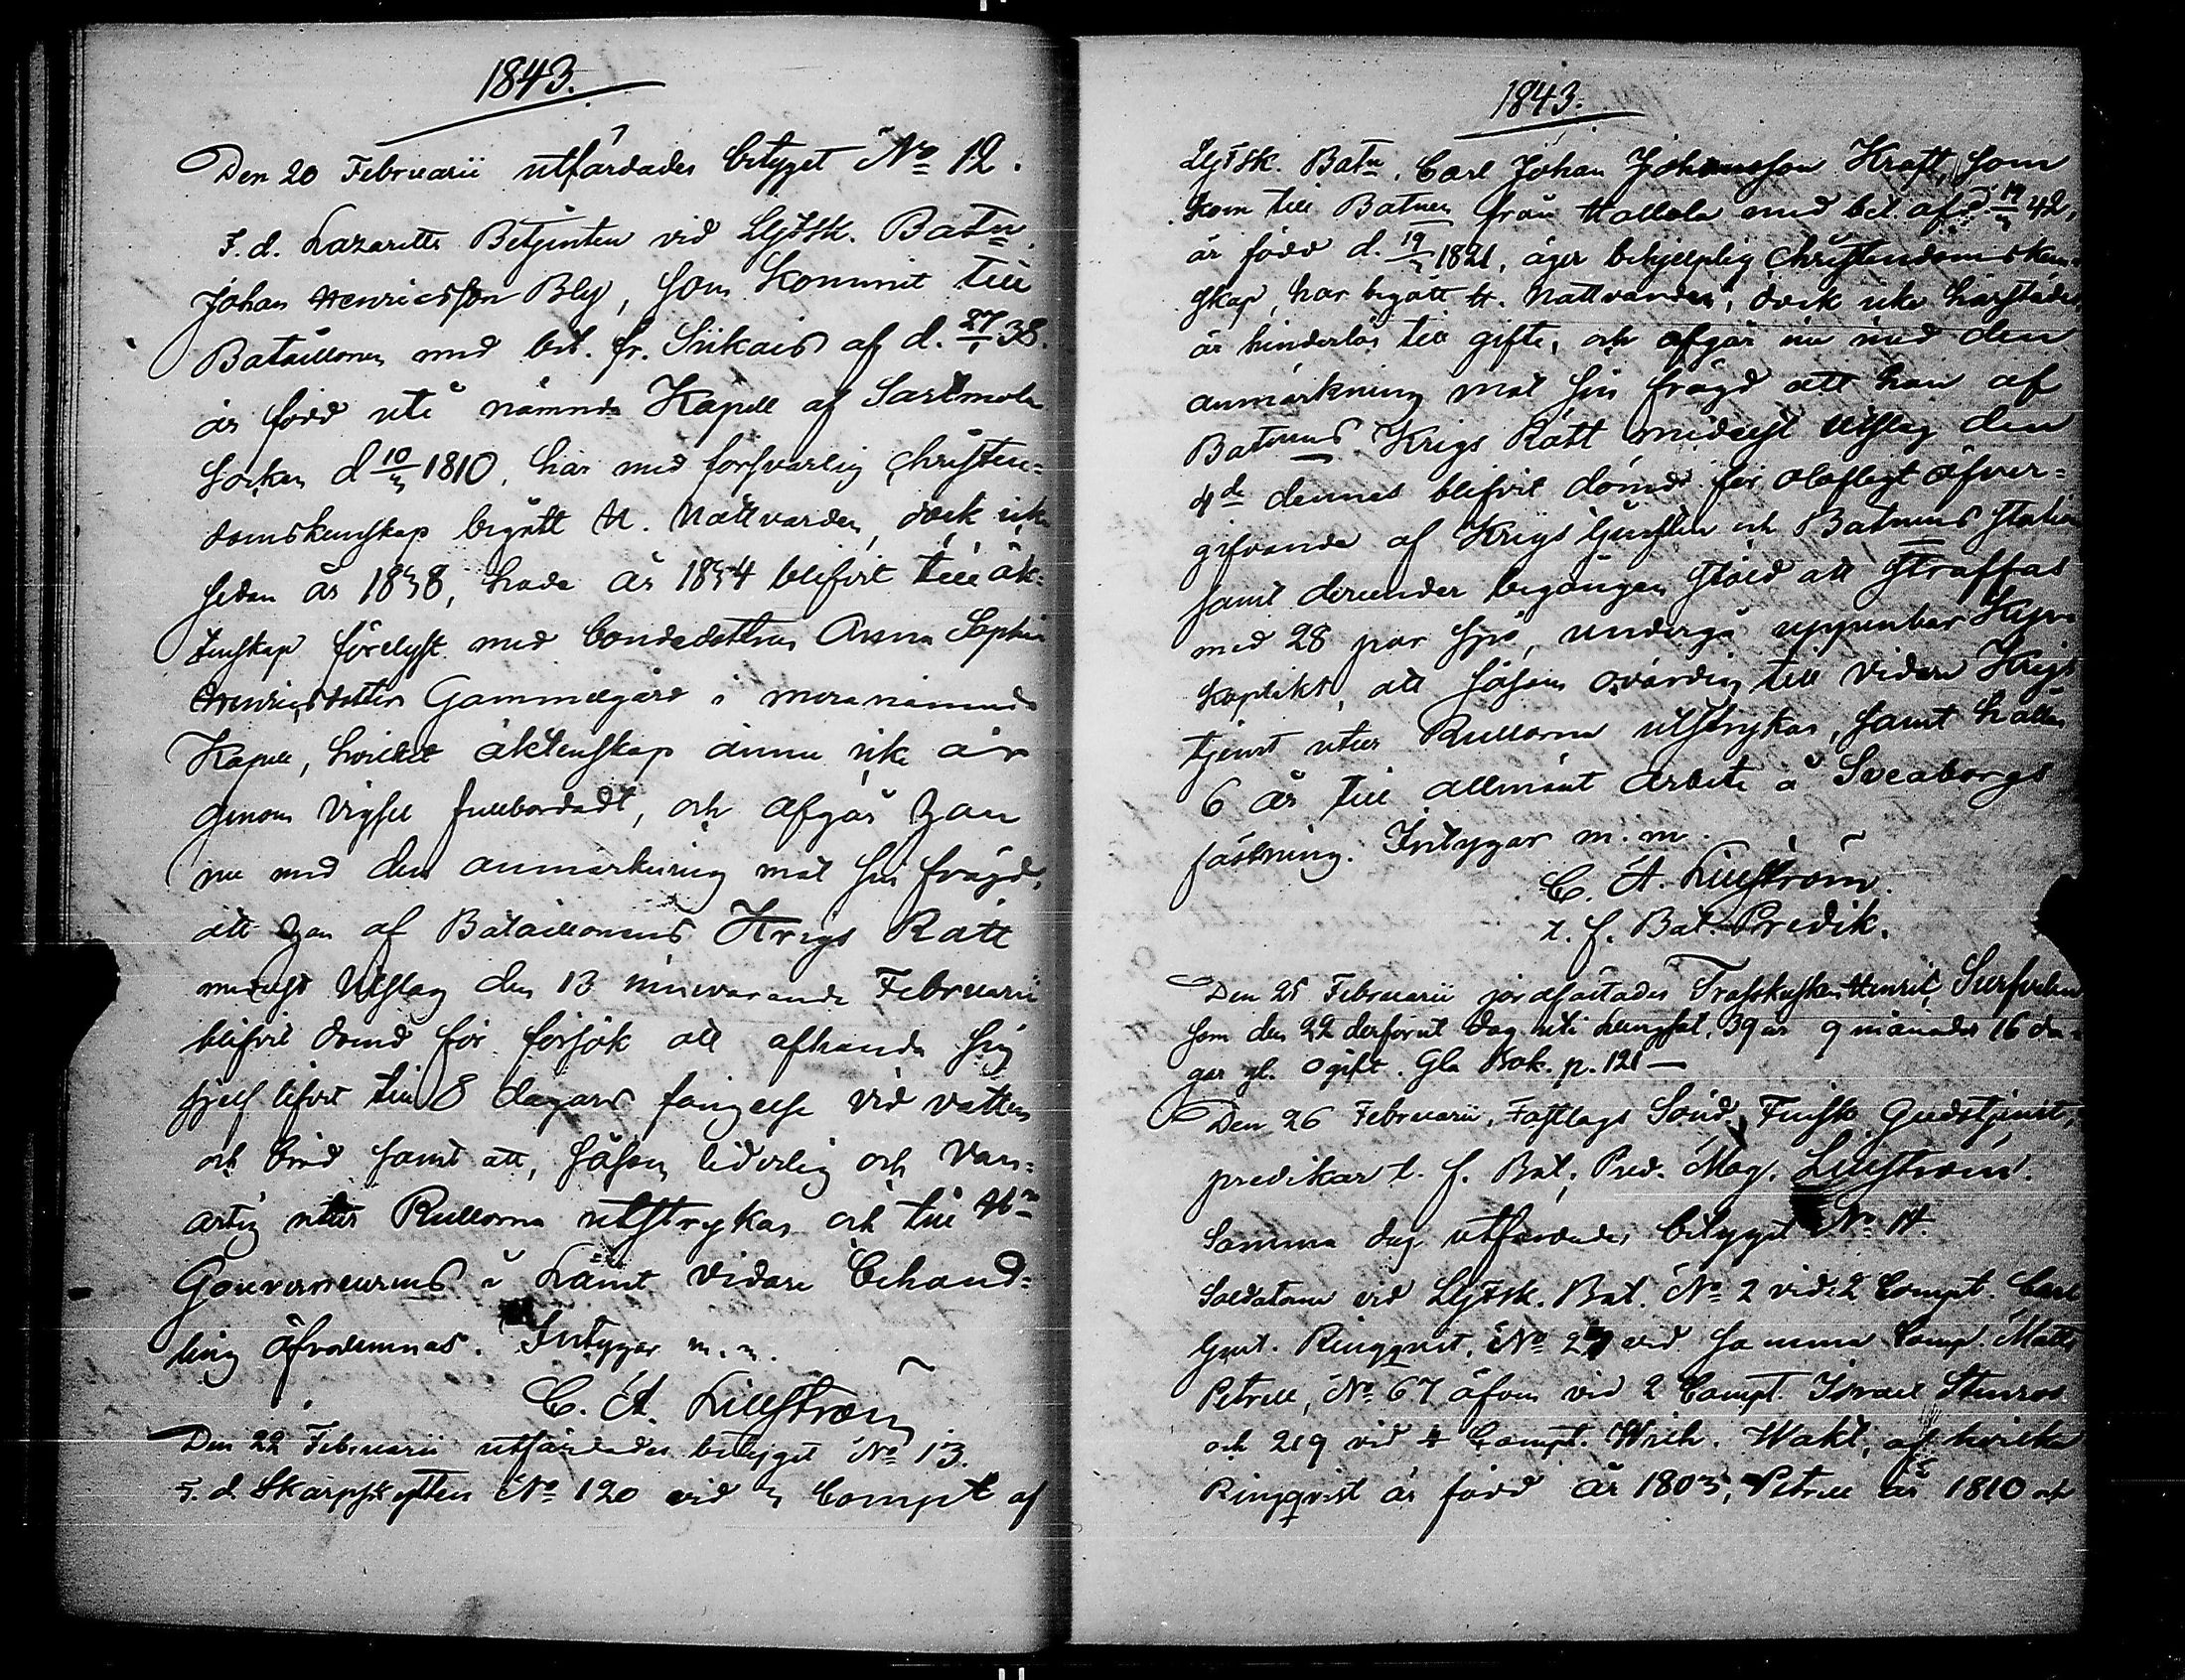 1843.
Den 20 Februarii utfärdades betyget No 12.
F. d. Lazaretts Betjenten vid LgFsk. Batn.
Johan Henricsson Bly, som kommit till
Bataillonen med bet. fr. Siikais af d. 27/1 38.
är född uti nämnde Kapell af Sastmola
socken d 10/3 1810, har med försvarlig Christen=
domskunskap begått H. Nattvarden, dock icke
sedan år 1838, hade år 1834 blifvit till äk=
tenskap förelyst med bondedottren Anna Sophia
Henricsdotter Gammelgård i meranämnde
Kapell, hvilket äktenskap ännu icke är
genom vigsel fullbordadt, och afgår han
nu med den anmärkning mot sin frägd,
att han af Bataillonens Krigs Rätt
medelst Utslag den 13 innevarande Februarii
blifvit dömd för försök att afhända sig
sjelf lifvet till 8 dagars fängelse vid vatten
och bröd samt att, såsom liderlig och van=
artig utur Rullorna utstrykas och till Hr
Gouverneurens i Länet vidare behand=
ling öfverlemnas. Intygar m. m.
C. A. Lillström
Den 22 Februarii utfärdades betyget No 13.
F. d. Skarpskytten No 120 vid 3 Compt af
1843.
LgFsk. Batn. Carl Johan Johansson Kraft, som
kom till Batnen från Hollola med bet. af d. 19/3 42,
är född d. 19/3 1821, äger behjelplig Christendomskun=
skap, har begått H. Nattvarden, dock icke härstädes
är hinderlös till gifte, och afgår nu med den
anmärkning mot sin frägd att han af
Batnens Krigs Rätt medelst Utslag den
4de dennes blifvit dömd för olofligt öfver=
gifvande af Krigs tjensten och Batnens station
samt derunder begången stöld att straffas
med 28 par spö, undergå uppenbar Kyrko
koplikt, att såsom ovärdig till vidare Krigs
tjenst utur Rullorna utstrykas, samt hållas
6 år till allmänt arbete å Sveaborgs
fästning. Intygar m. m.
C. A. Lillström.
t. f. Bat. Predik.
Den 25 Februarii jordfästades Henric
som den 22 derförut dog uti lungsot, 39 år 9 månader 16 da=
gar gl. ogift. Gla Bok. p. 121 —
Den 26 Februarii, Fastlags Sönd. Finsk Gudstjenst,
predikar t. f. Bat. Pred. Mag. Lillström.
Samma dag utfärdades betyget No 14.
Soldaterne vid LgFsk. Bat. No 2 vid 2 Compt. Carl
Gust. Ringqvist, No 27 vid samma Comp. Matts
Petrell, No 67 äfven vid 2 Compt. Israel Stenroos
och 219 vid 4 Compt. Wilh. Wakt, af hvilka
Ringqvist är född år 1803, Petrell år 1810 och